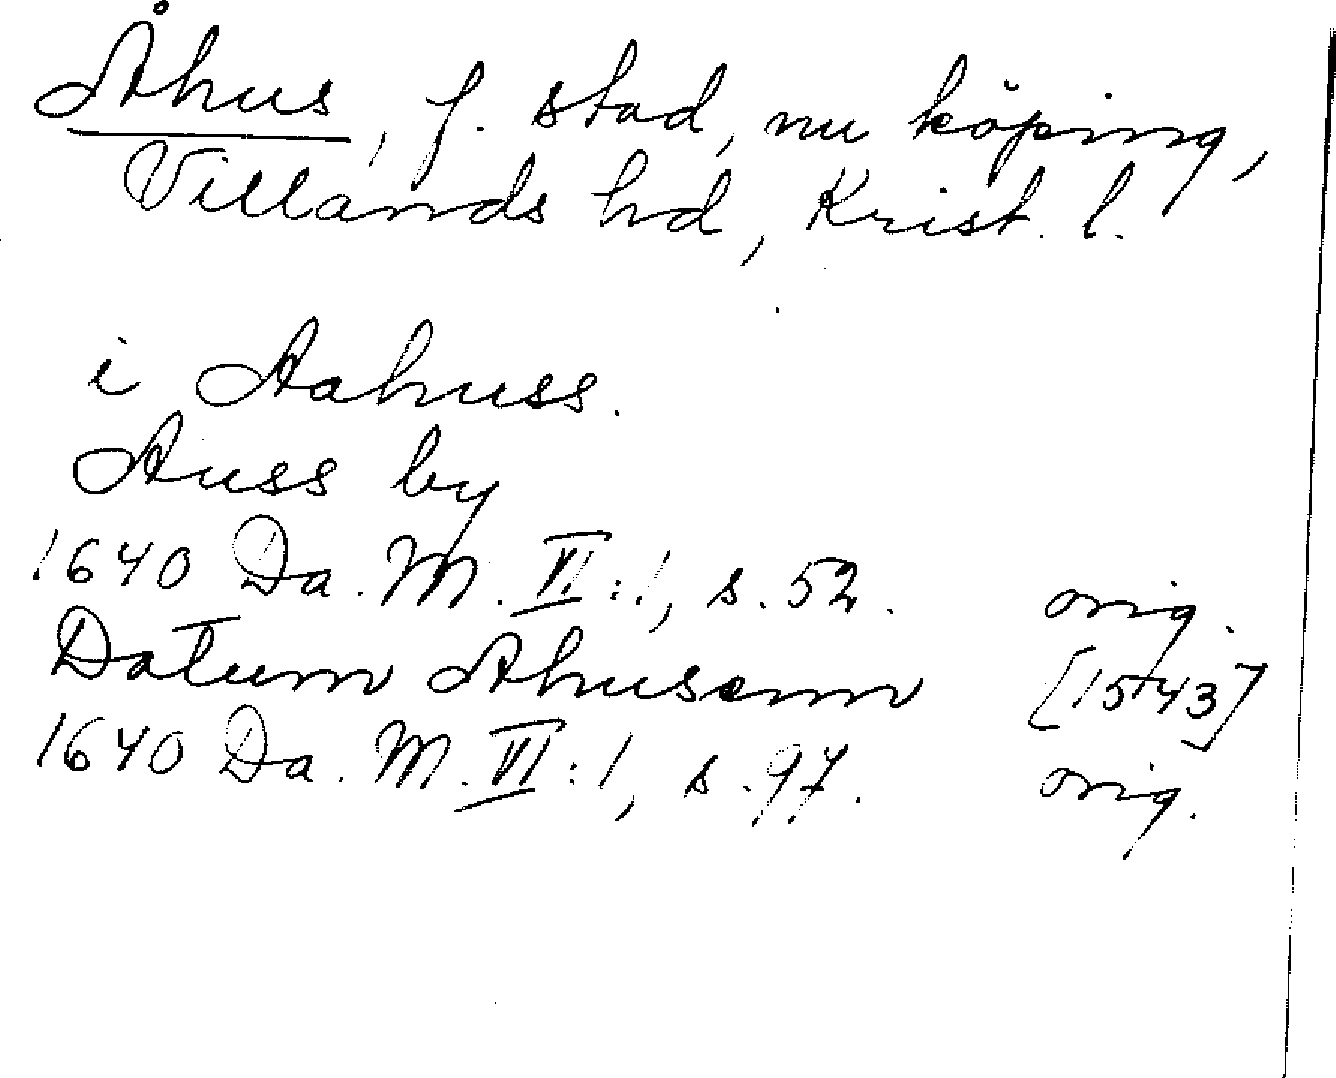 Åhus, f. stad, nu köping,
Villands hd, Krist. l.
i Aahuss.
Auss by
1640 Da. M. VI:1, s. 52. orig.
Datum Ahusenn [1543]
1640 Da. M. VI:1, s. 97. orig.